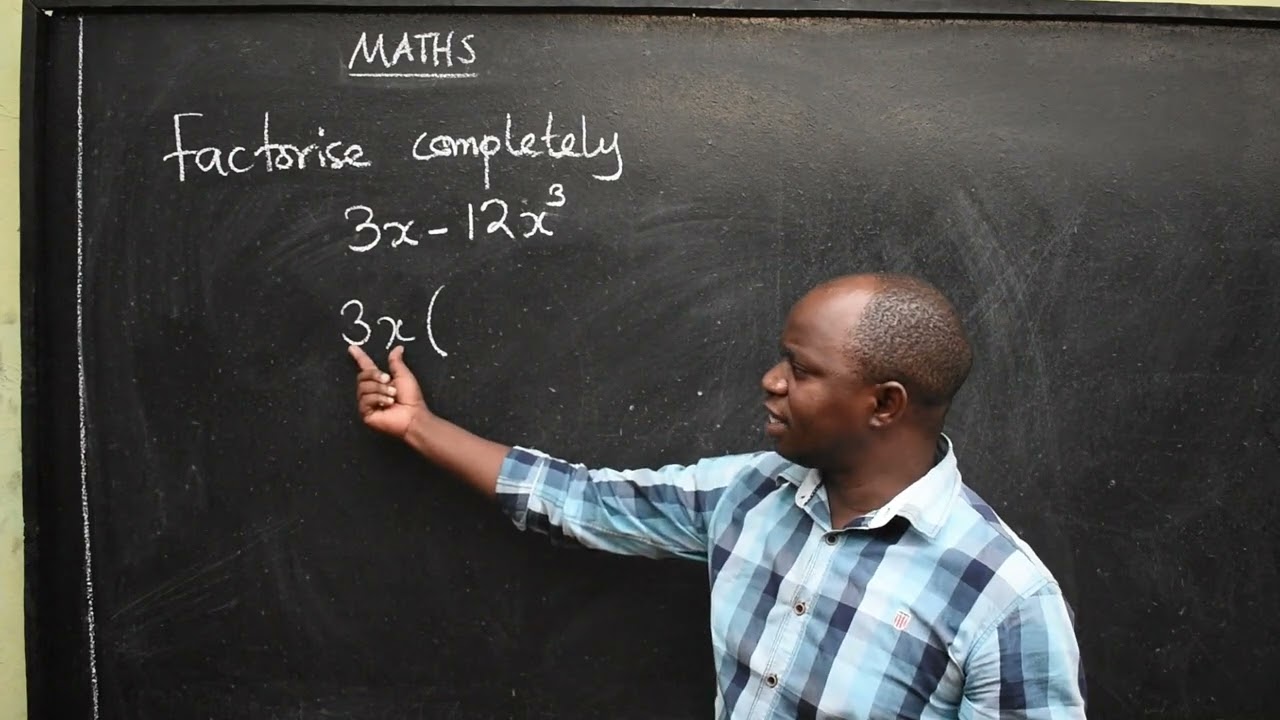 MATHS
Factorise completely
3x - 12x³
3x (